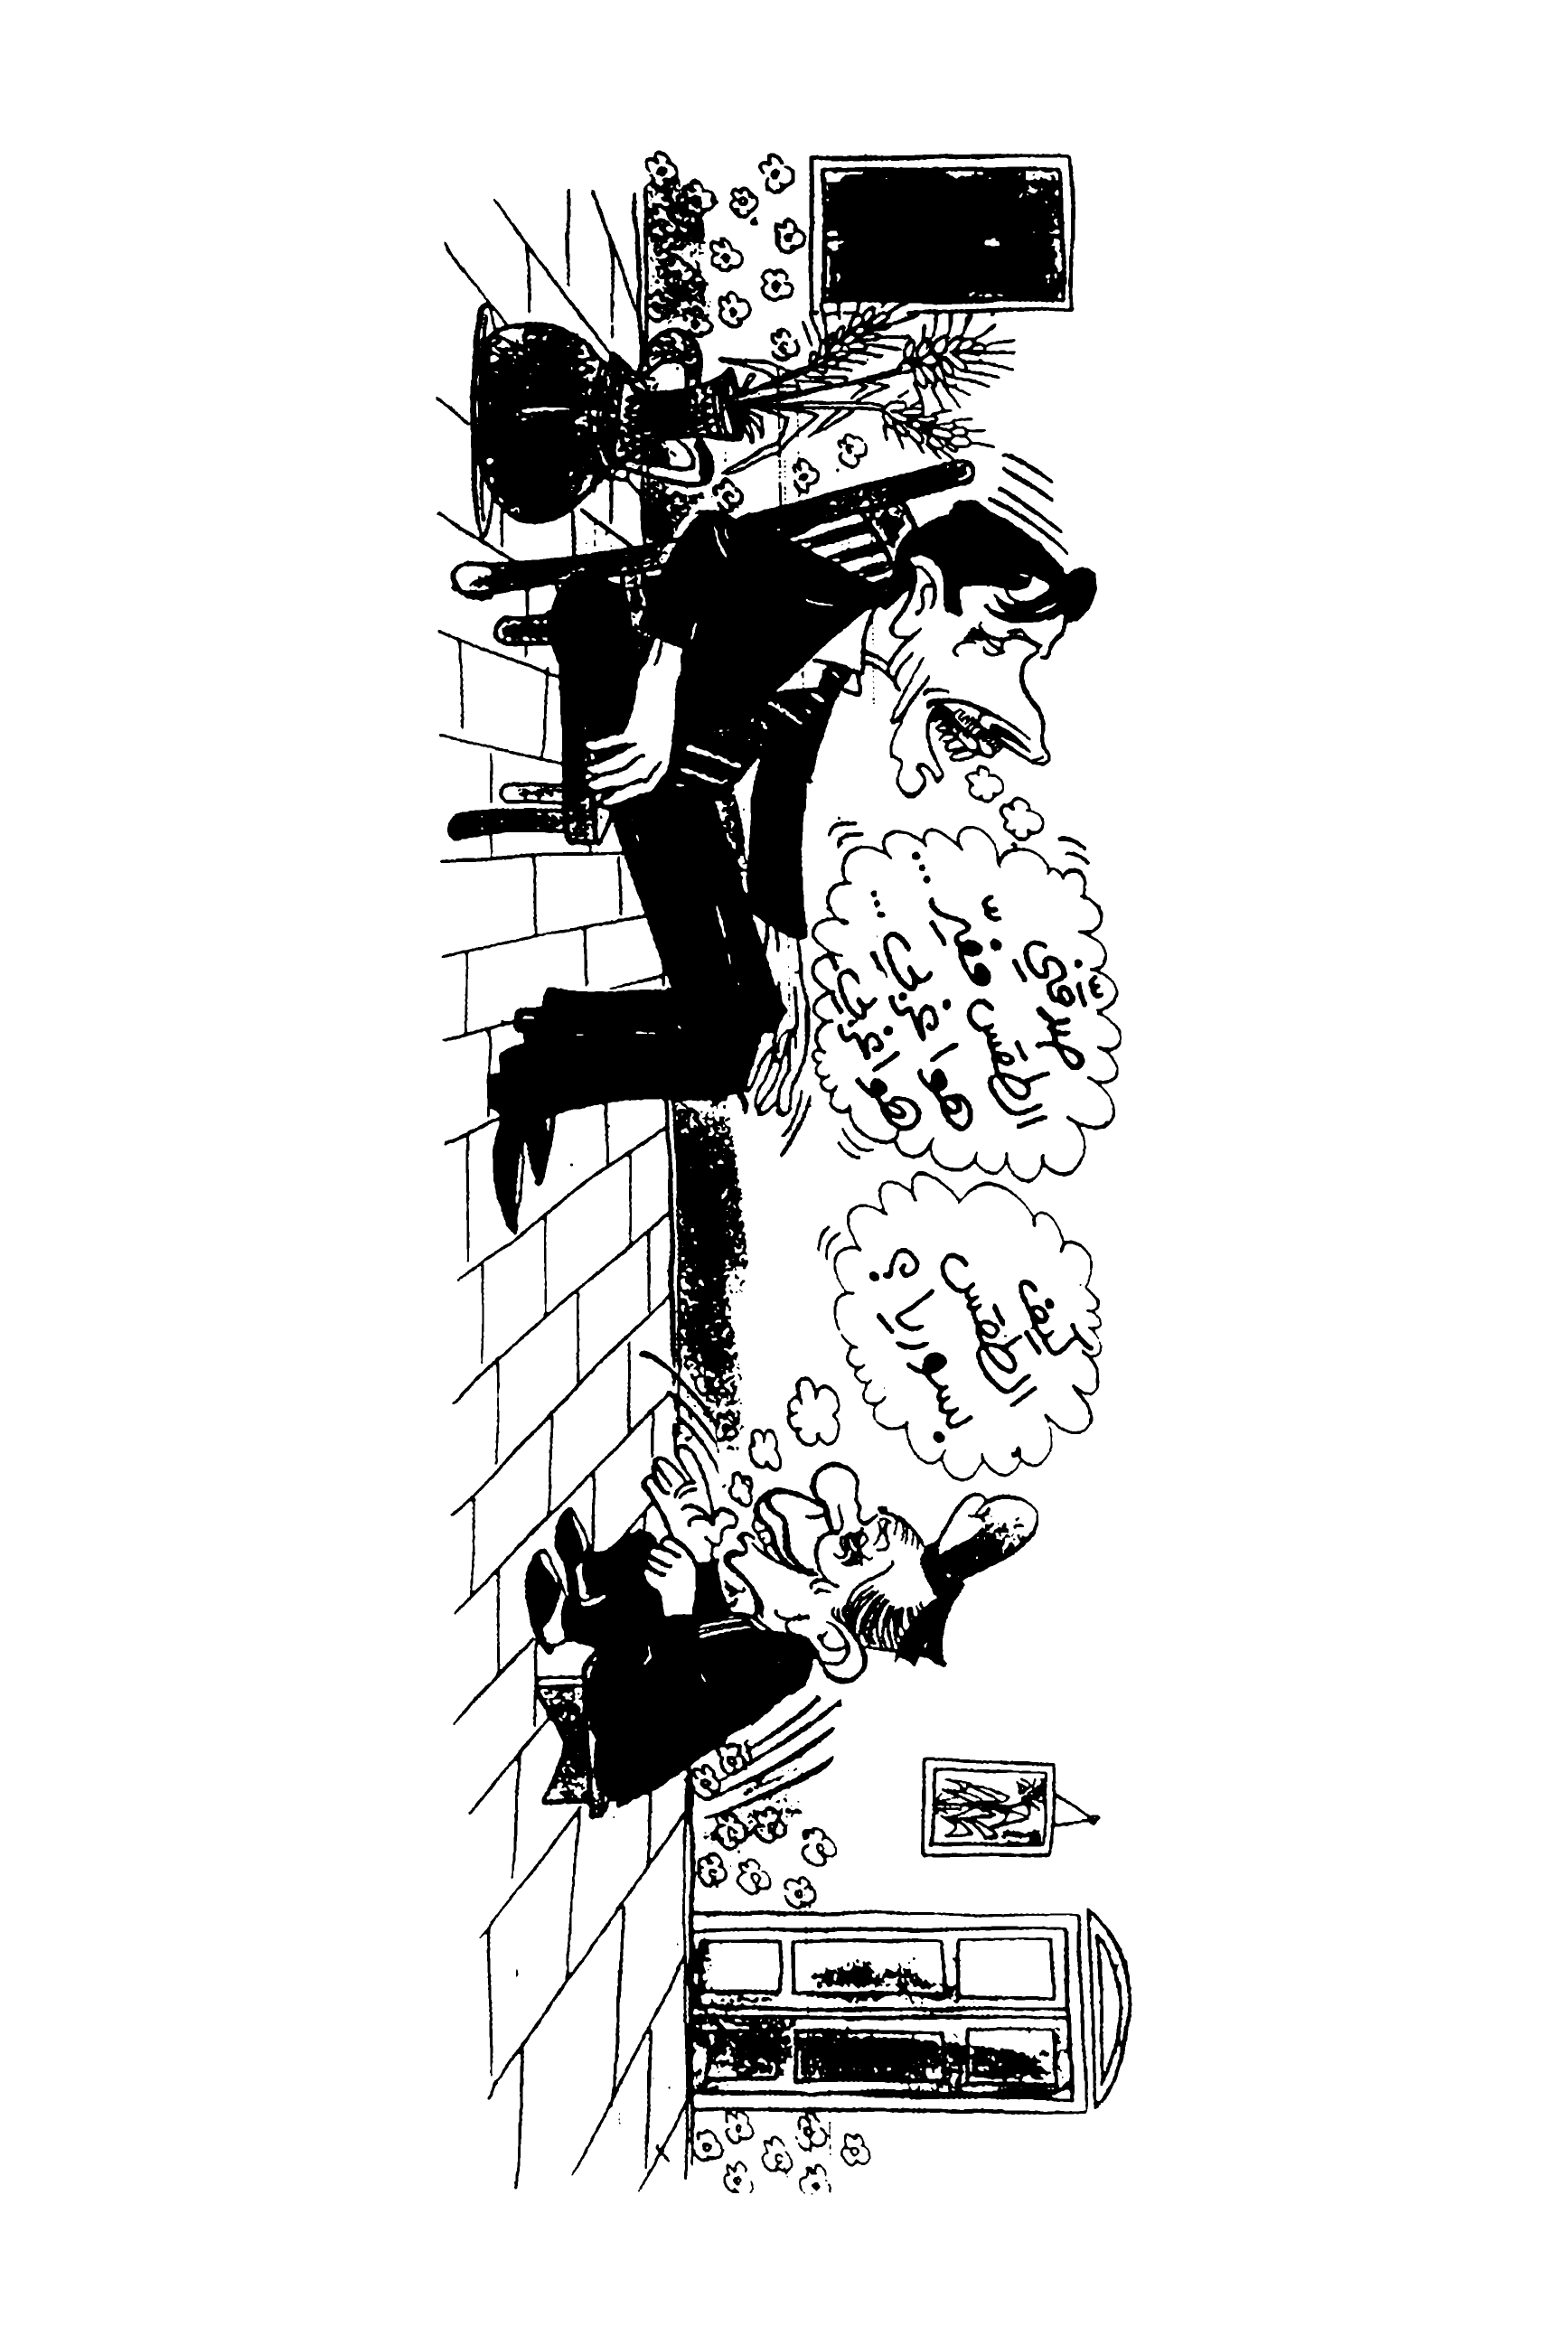 كيف
الطقس
بسوريا؟
صدقني
الطقس
هوا غربي ...
هوا غربي